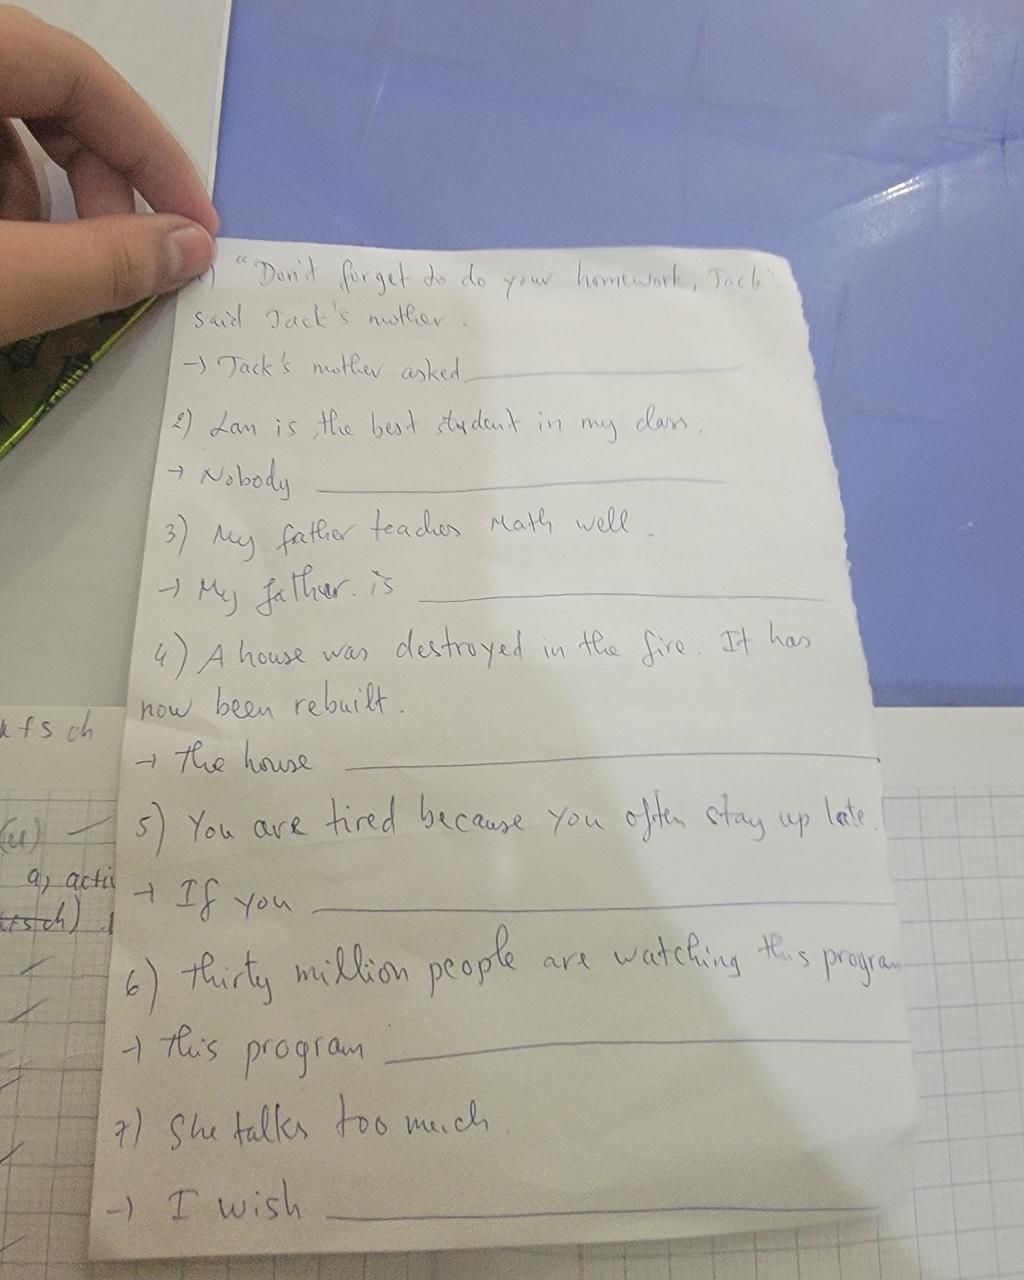 1) "Don't forget to do your homework, Jack"
said Jack's mother.
→ Jack's mother asked
2) Lan is the best student in my class.
→ Nobody
3) My father teaches Math well.
→ My father is
4) A house was destroyed in the fire. It has
now been rebuilt.
→ the house
5) You are tired because you often stay up late.
→ If you
6) thirty million people are watching this program
→ this program
7) She talks too much.
→ I wish
ch
a, acti